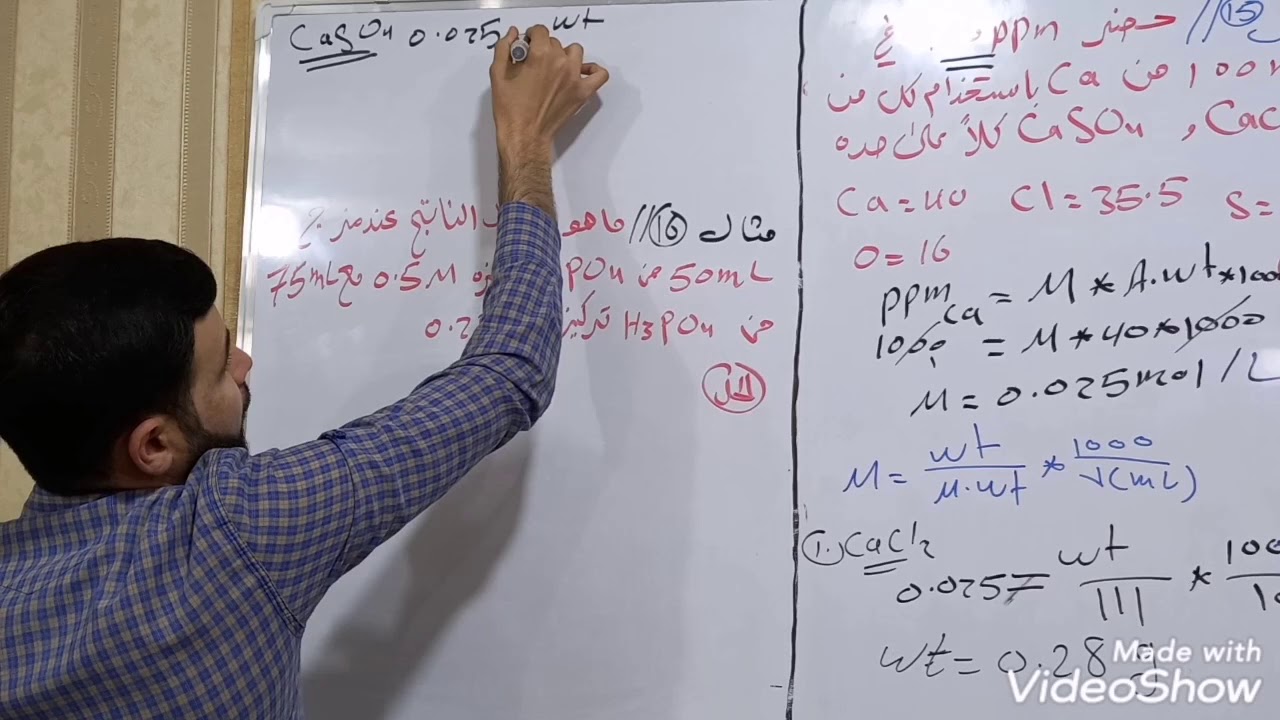 CaSO4 0.025 = wt
مثال 16 // ماهو الناتج عند مزج
50mL من PO4 0.5 M مع 75mL
من H3PO4 0.2
الحل
15 // حضر ppm
100 من Ca باستخدام كل من
CaSO4 و CaC كلاً على حده
Ca = 40 Cl = 35.5 S =
O = 16
ppm Ca = M * A.wt * 100
1000 = M * 40 * 1000
M = 0.025 mol / L
M = wt / M.wt * 1000 / V(mL)
1. CaCl2
0.025 = wt / 111 * 100 / 10
wt = 0.28 g
Made with
VideoShow